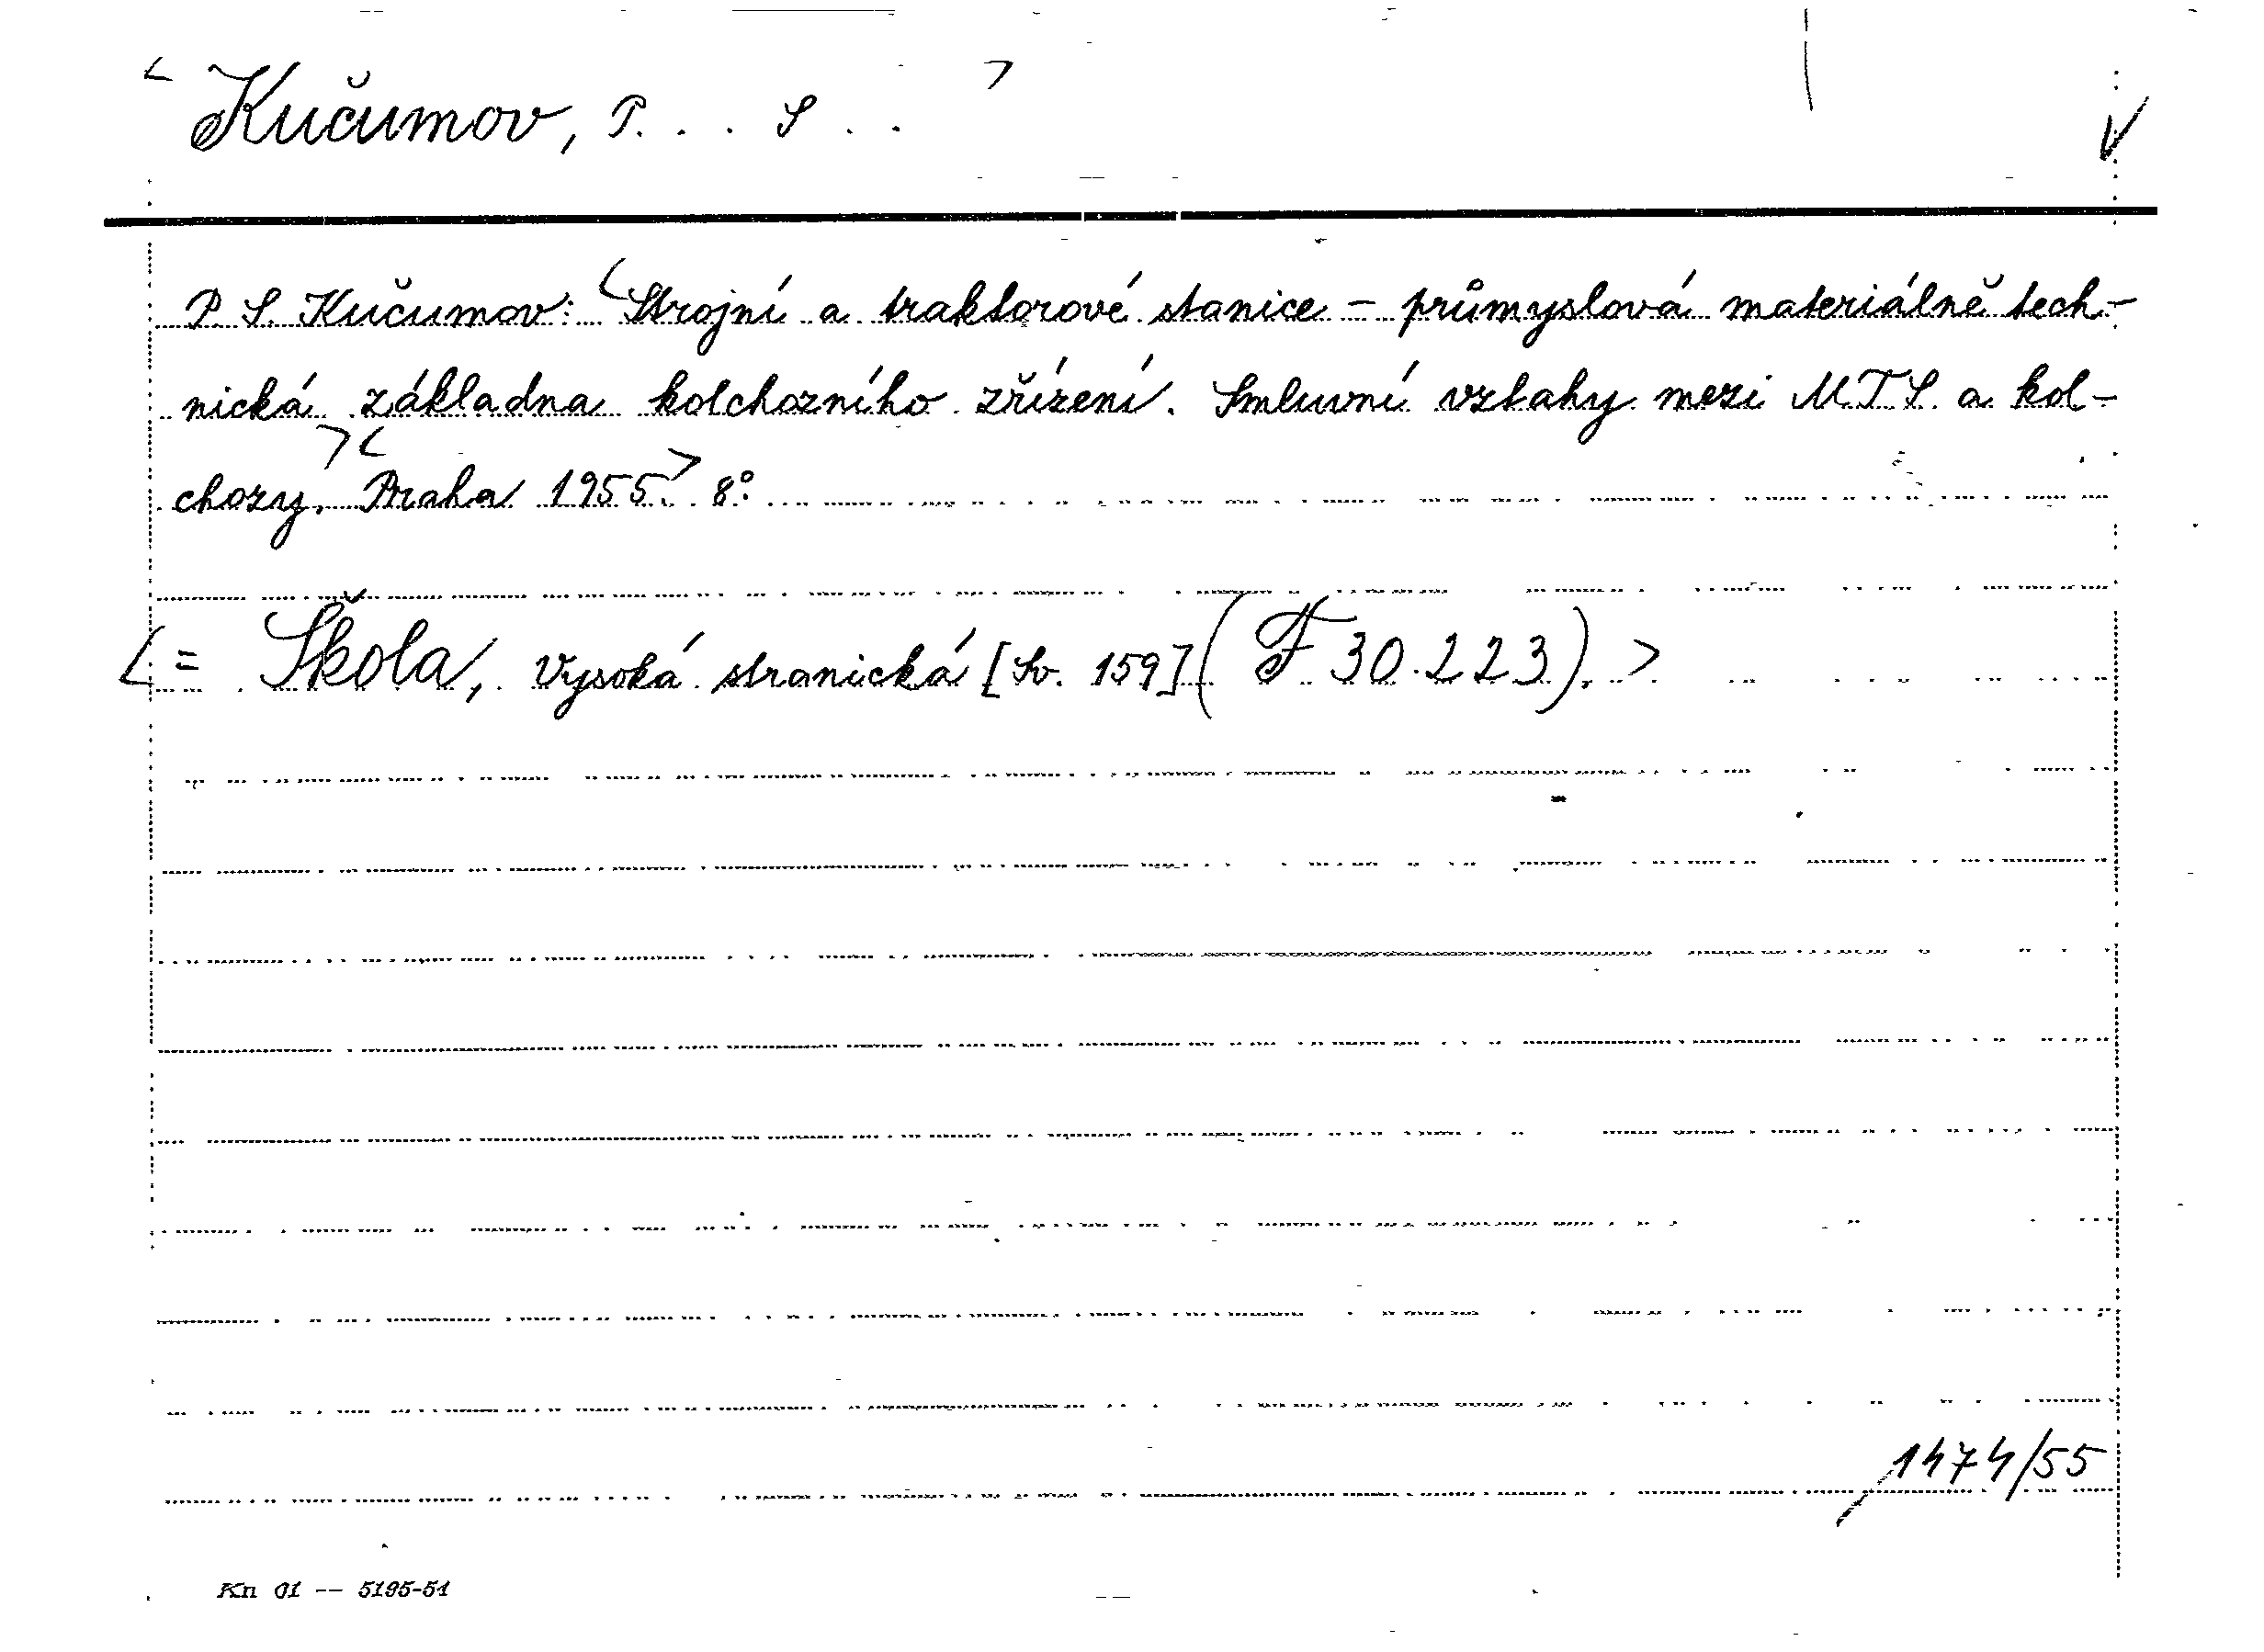 < Kučumov, P. . . S . . >
P. S. Kučumov: <Strojní a traktorové stanice – průmyslová materiálně tech-
nická základna kolchozního zřízení. Smluvní vztahy mezi M.T.S. a kol-
chozy.> <Praha 1955.> 8°.
<= Škola, Vysoká stranická [Sv. 159] (F 30.223).>
1474/55
Kn 01 -- 5195-51